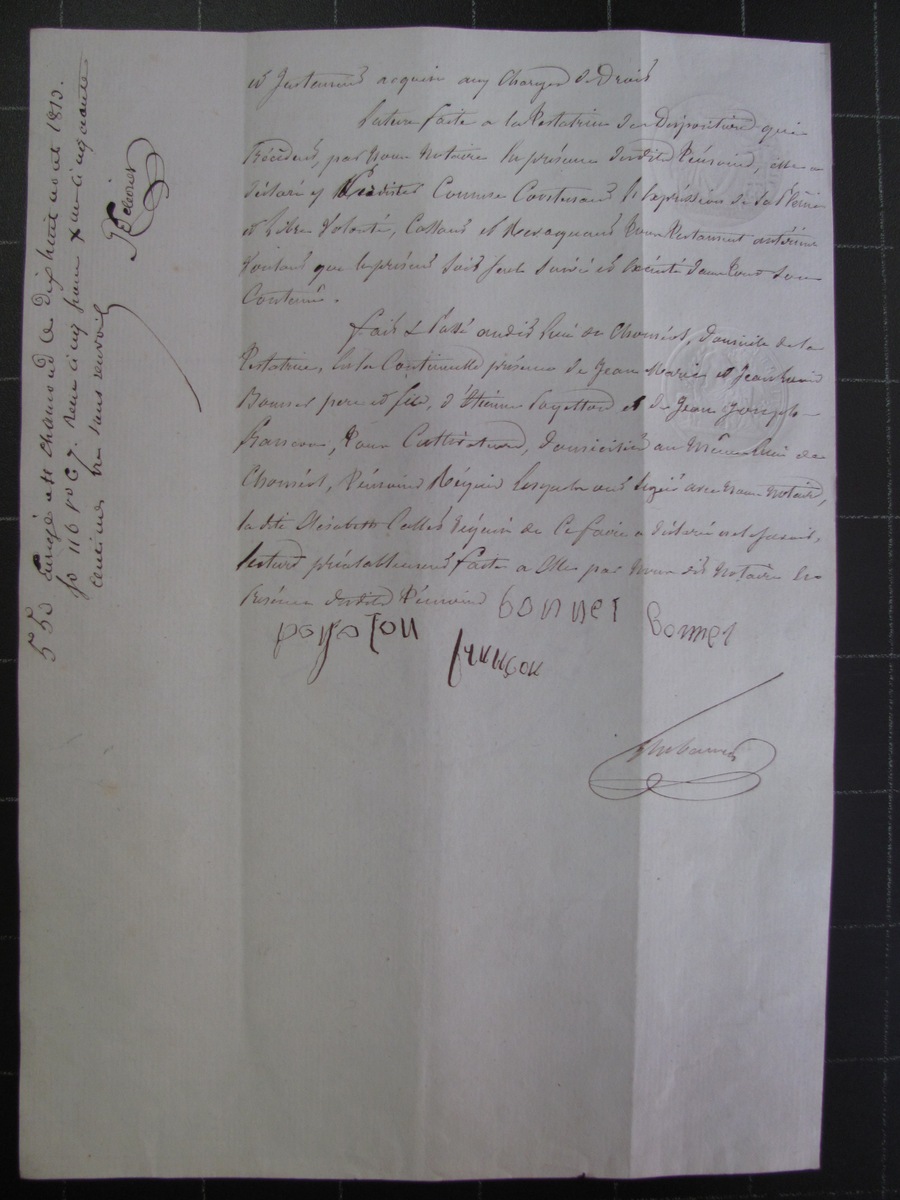 et Justement acquise aux Charges de Droit
Lecture faite a la Testatrice des Dispositions qui
Précèdent, par Nous Notaire En présence desdits Témoins, elle a
déclaré y Persister Comme Contenant l'Expression de Sa Pleine
et Libre Volonté, Cassant et Revoquant Tous Testament antérieur
Voulant que le présent soit seul Suivi et Exécuté dans tout Son
Contenu.
fait & Passé audit lieu de Chomiol, Domicile de la
Testatrice, En la Continuelle présence de Jean Marie et Jean
Bonnet pere et fils, d'Etienne Payotton et de Jean Joseph
françon, Tous Cultivateurs, Domiciliés au Même lieu de
Chomiol, Témoins Réquis Lesquels ont signé avec Nous Notaire,
la dite Elisabeth requise de Ce faire a déclaré ne Savoir,
lecture préalablement faite a Elle par Nous dit Notaire En
Présence desdits Témoins
bonnet Bonnet
payoton
françon
Enregistré a St Chamond le Dix huit aout 1813.
fo 116 vo C 7. Reçu cinq francs cinquante
centimes sans renvoi